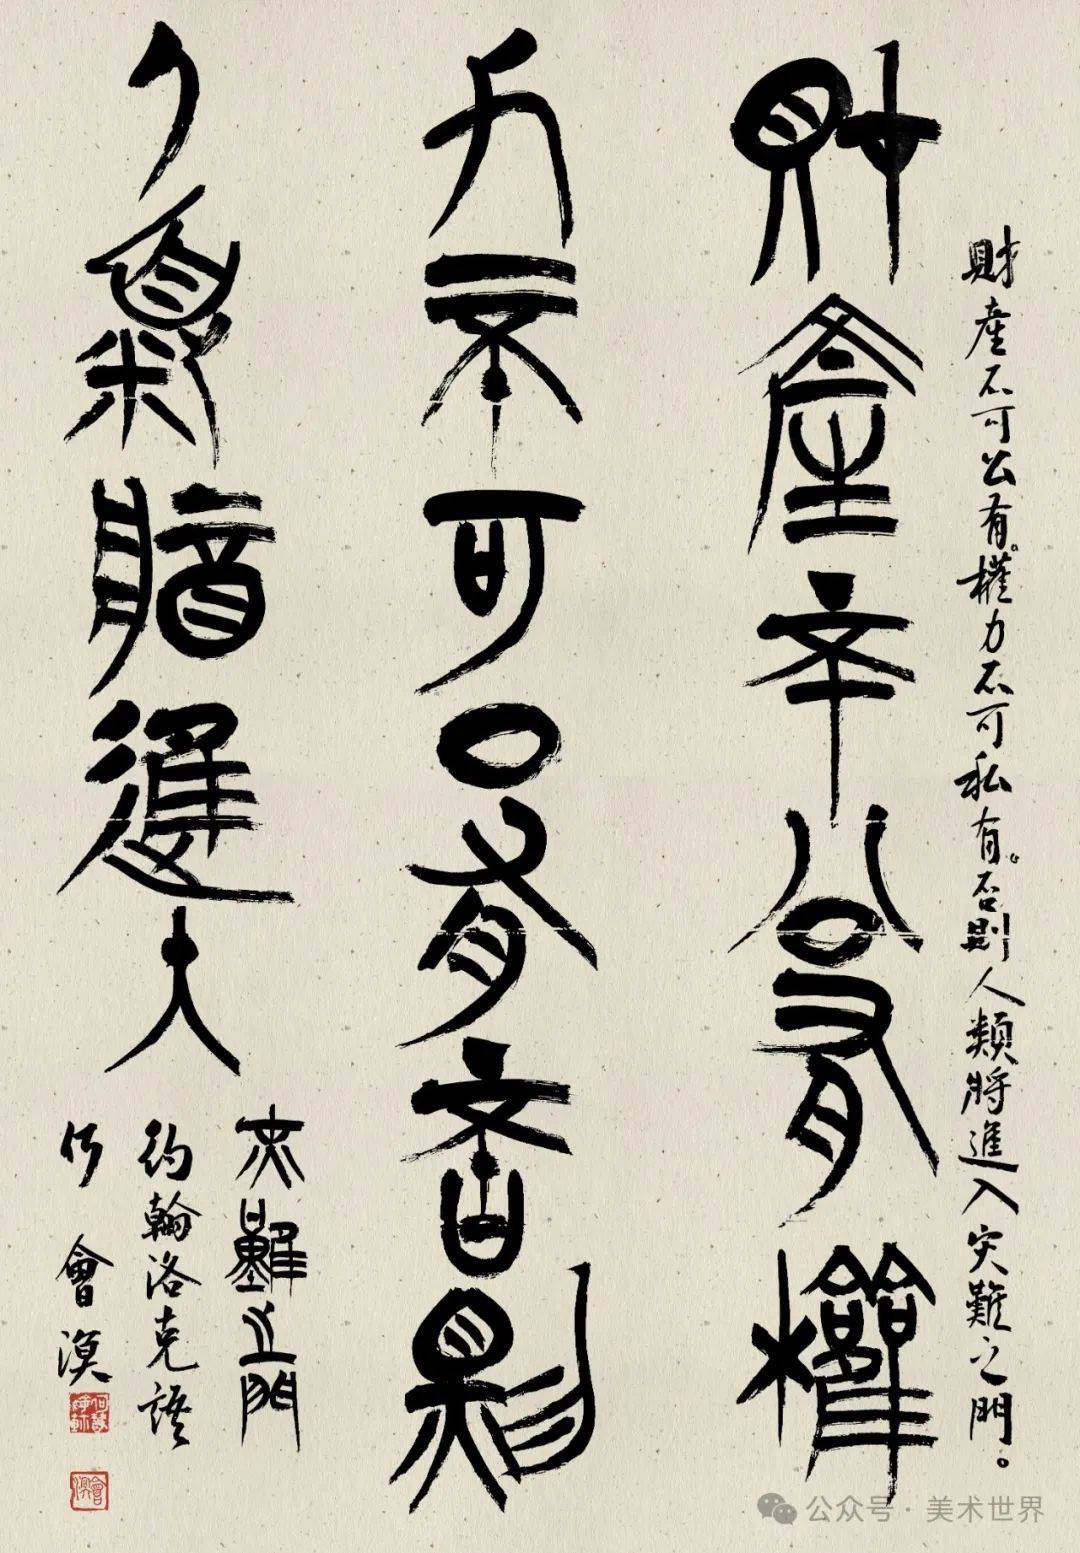 財產不可公有。權力不可私有。否則人類將進入灾難之門。
財產不公有權
力不可厶有否則
人類將進入
灾難之門
約翰洛克語
公众号·美术世界